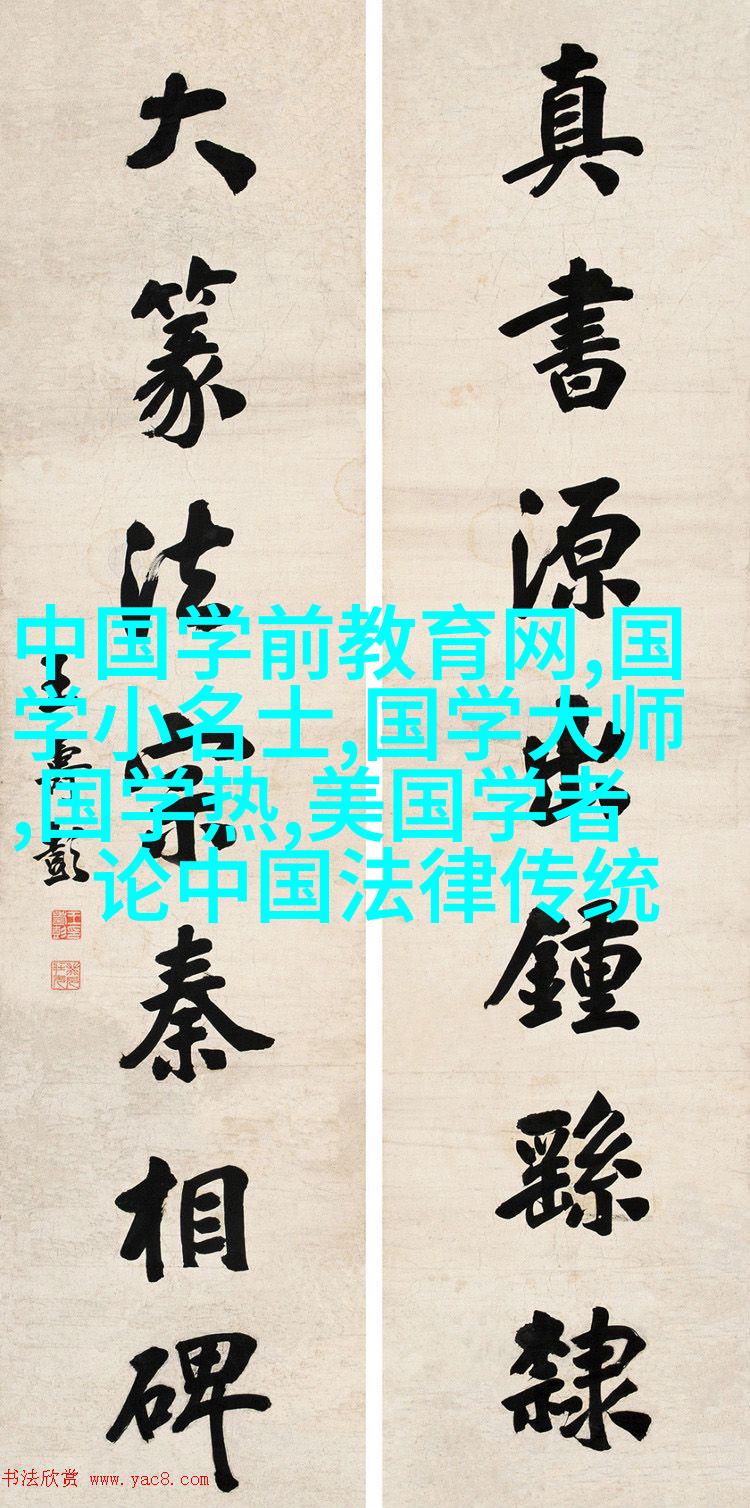 真書源出鍾繇隸
大篆法宗秦相碑
王壽彭
中国学前教育网,国
学小名士,国学大师
,国学热,美国学者
论中国法律传统
书法欣赏 www.yac8.com